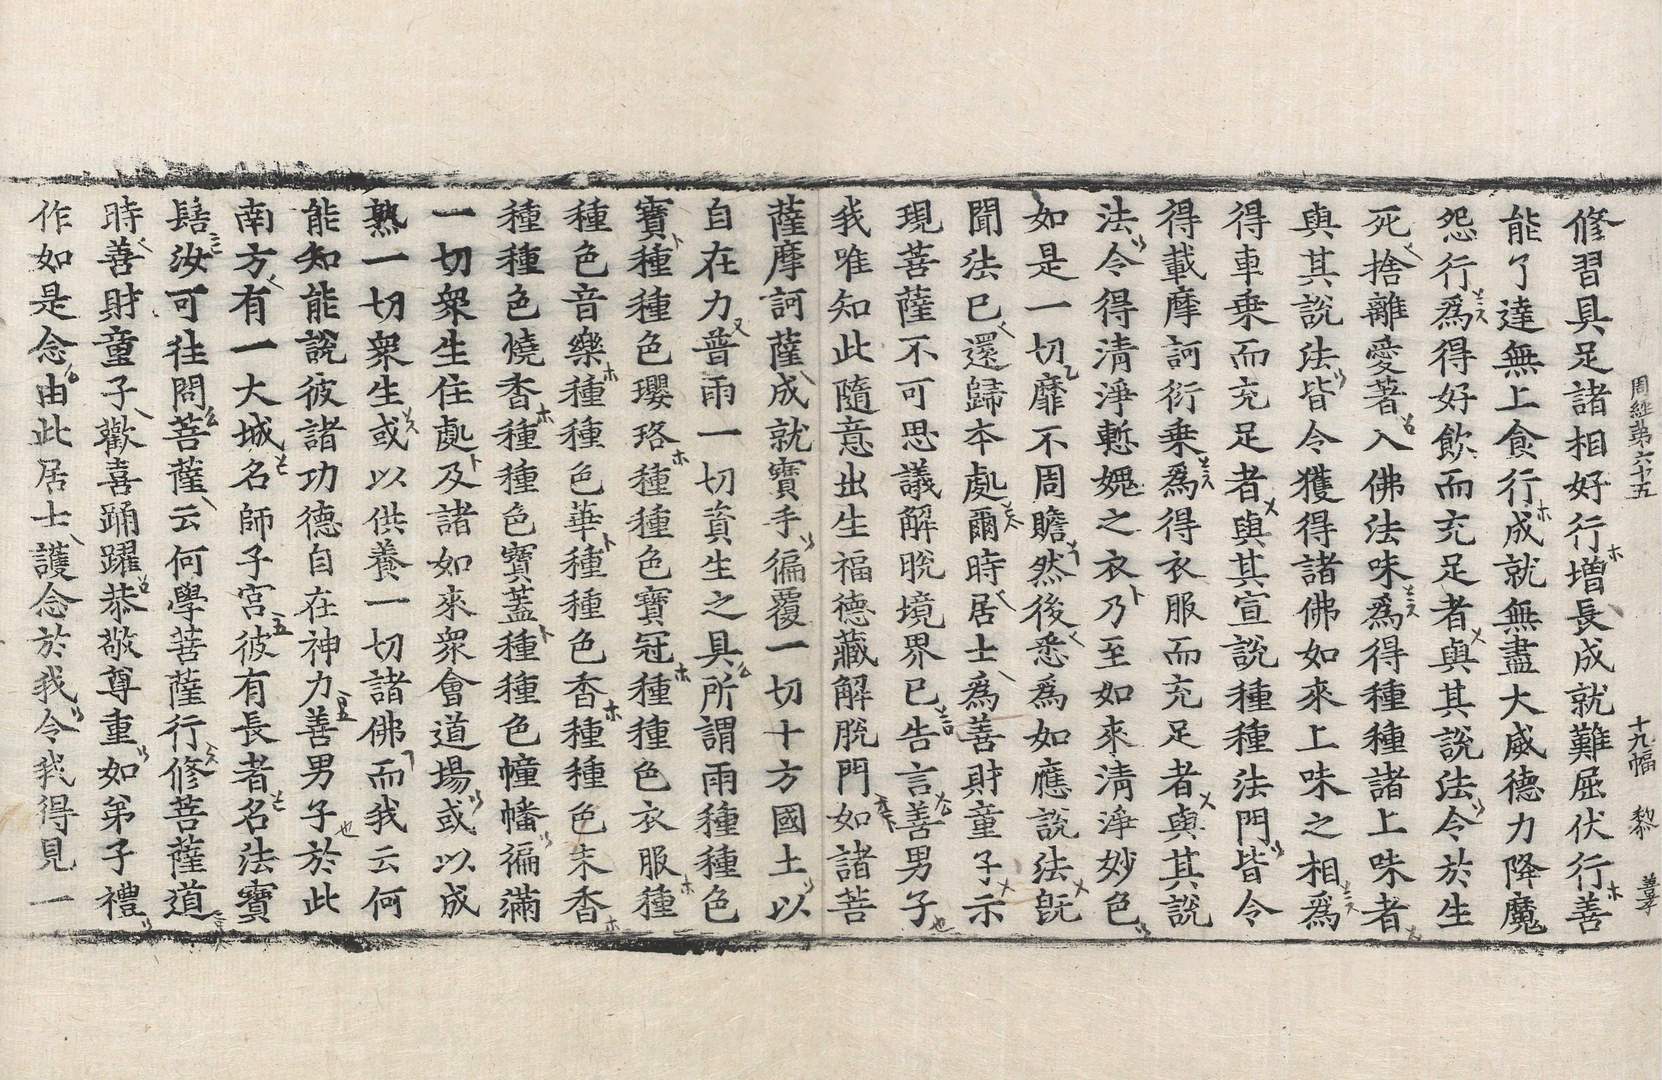 周經第六十五 十九幅 黎
修習具足諸相好行增長成就難屈伏行善
能了達無上食行成就無盡大威德力降魔
怨行爲得好飲而充足者與其說法令於生
死捨離愛著入佛法味爲得種種諸上味者
與其說法皆令獲得諸佛如來上味之相爲
得車乘而充足者與其宣說種種法門皆令
得載摩訶衍乘爲得衣服而充足者與其說
法令得清淨慙愧之衣乃至如來清淨妙色
如是一切靡不周贍然後悉爲如應說法旣
聞法已還歸本處爾時居士爲善財童子示
現菩薩不可思議解脫境界已告言善男子
我唯知此隨意出生福德藏解脫門如諸菩
薩摩訶薩成就寶手徧覆一切十方國土以
自在力普雨一切資生之具所謂雨種種色
寶種種色瓔珞種種色寶冠種種色衣服種
種色音樂種種色華種種色香種種色末香
種種色燒香種種色寶蓋種種色幢幡徧滿
一切衆生住處及諸如來衆會道場或以成
熟一切衆生或以供養一切諸佛而我云何
能知能說彼諸功德自在神力善男子於此
南方有一大城名師子宮彼有長者名法寶
髻汝可往問菩薩云何學菩薩行修菩薩道
時善財童子歡喜踊躍恭敬尊重如弟子禮
作如是念由此居士護念於我令我得見一